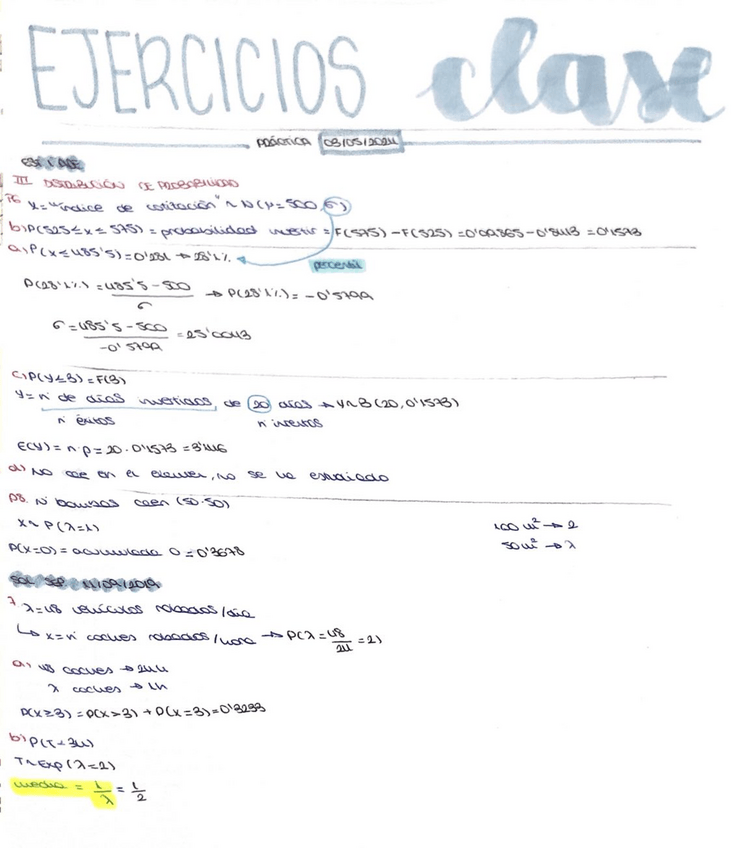 EJERCICIOS clase
PRÁCTICA 03/05/2024
III DISTRIBUCIÓN DE PROBABILIDAD
x = "índice de cotización" ~ N(μ=500, σ)
b) P(525≤x≤575) = probabilidad invertir = F(575) - F(525) = 0'99865 - 0'8413 = 0'1573
a) P(x≤485'5) = 0'281 → 28'1%
percentil
P(28'1%) = 485'5-500 / σ → P(28'1%) = -0'5799
σ = 485'5-500 / -0'5799 = 25'0043
c) P(y≤3) = F(3)
y = nº de días invertidos de 20 días → y~B(20, 0'1573)
nº éxitos nº intentos
E(y) = n·p = 20·0'1573 = 3'146
d) No cae en el examen, no se ha estudiado
P8. Nº bombas caen (50·50)
x~P(λ=1)
100 m² → 2
50 m² → λ
P(x=0) = acumulada 0 = 0'3678
SOL SEP 11/09/2019
7 λ=48 vehículos robados/día
↳ x = nº coches robados/hora → P(λ = 48/24 = 2)
a) 48 coches → 24h
λ coches → 1h
P(x≥3) = P(x>3) + P(x=3) = 0'3233
b) P(T<3h)
T~Exp(λ=2)
media = 1/λ = 1/2